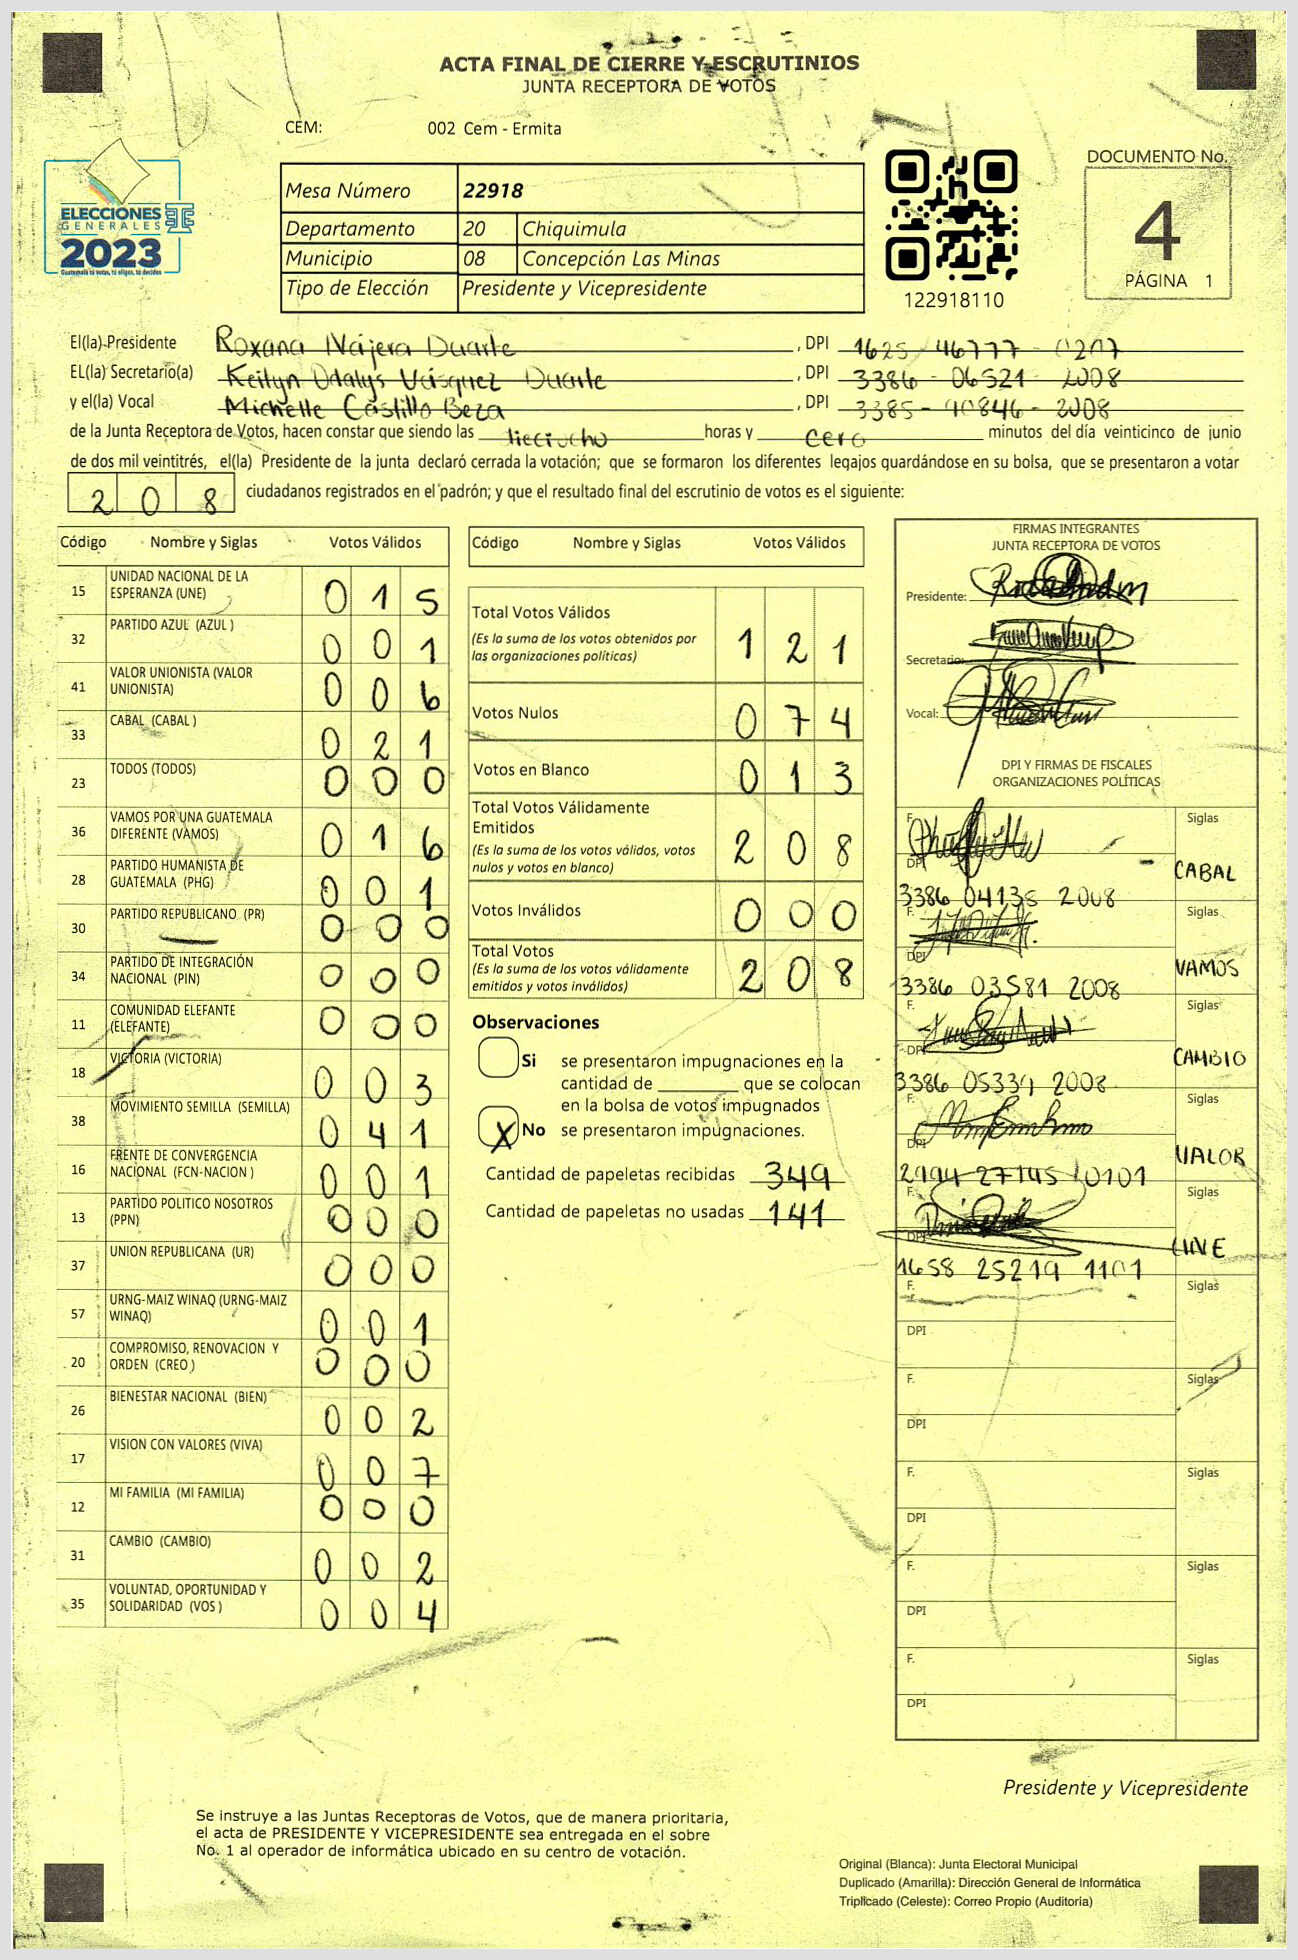 ACTA FINAL DE CIERRE Y ESCRUTINIOS
JUNTA RECEPTORA DE VOTOS
CEM: 002 Cem - Ermita
ELECCIONES
GENERALES
2023
Guatemala tú votas, tú eliges, tú decides
Mesa Número 22918
Departamento 20 Chiquimula
Municipio 08 Concepción Las Minas
Tipo de Elección Presidente y Vicepresidente
122918110
DOCUMENTO No.
4
PÁGINA 1
El(la) Presidente Roxana Nájera Duarte, DPI 1625 46777 0207
EL(la) Secretario(a) Keilyn Odalys Vásquez Duarte, DPI 3386 - 06521 - 2008
y el(la) Vocal Michelle Castillo Beza, DPI 3385 - 90846 - 2008
de la Junta Receptora de Votos, hacen constar que siendo las dieciocho horas y cero minutos del día veinticinco de junio
de dos mil veintitrés, el(la) Presidente de la junta declaró cerrada la votación; que se formaron los diferentes legajos quardándose en su bolsa, que se presentaron a votar
2 0 8 ciudadanos registrados en el padrón; y que el resultado final del escrutinio de votos es el siguiente:
Código Nombre y Siglas Votos Válidos
15 UNIDAD NACIONAL DE LA ESPERANZA (UNE) 0 1 5
32 PARTIDO AZUL (AZUL ) 0 0 1
41 VALOR UNIONISTA (VALOR UNIONISTA) 0 0 6
33 CABAL (CABAL ) 0 2 1
23 TODOS (TODOS) 0 0 0
36 VAMOS POR UNA GUATEMALA DIFERENTE (VAMOS) 0 1 6
28 PARTIDO HUMANISTA DE GUATEMALA (PHG) 0 0 1
30 PARTIDO REPUBLICANO (PR) 0 0 0
34 PARTIDO DE INTEGRACIÓN NACIONAL (PIN) 0 0 0
11 COMUNIDAD ELEFANTE (ELEFANTE) 0 0 0
18 VICTORIA (VICTORIA) 0 0 3
38 MOVIMIENTO SEMILLA (SEMILLA) 0 4 1
16 FRENTE DE CONVERGENCIA NACIONAL (FCN-NACION ) 0 0 1
13 PARTIDO POLITICO NOSOTROS (PPN) 0 0 0
37 UNION REPUBLICANA (UR) 0 0 0
57 URNG-MAIZ WINAQ (URNG-MAIZ WINAQ) 0 0 1
20 COMPROMISO, RENOVACION Y ORDEN (CREO ) 0 0 0
26 BIENESTAR NACIONAL (BIEN) 0 0 2
17 VISION CON VALORES (VIVA) 0 0 7
12 MI FAMILIA (MI FAMILIA) 0 0 0
31 CAMBIO (CAMBIO) 0 0 2
35 VOLUNTAD, OPORTUNIDAD Y SOLIDARIDAD (VOS ) 0 0 4
Código Nombre y Siglas Votos Válidos
Total Votos Válidos 1 2 1
(Es la suma de los votos obtenidos por
las organizaciones políticas)
Votos Nulos 0 7 4
Votos en Blanco 0 1 3
Total Votos Válidamente
Emitidos 2 0 8
(Es la suma de los votos válidos, votos
nulos y votos en blanco)
Votos Inválidos 0 0 0
Total Votos 2 0 8
(Es la suma de los votos válidamente
emitidos y votos inválidos)
Observaciones
Si se presentaron impugnaciones en la
cantidad de ________ que se colocan
en la bolsa de votos impugnados
X No se presentaron impugnaciones.
Cantidad de papeletas recibidas 349
Cantidad de papeletas no usadas 141
FIRMAS INTEGRANTES
JUNTA RECEPTORA DE VOTOS
Presidente:
Secretario:
Vocal:
DPI Y FIRMAS DE FISCALES
ORGANIZACIONES POLÍTICAS
F. Siglas
DPI CABAL
3386 04135 2008
F. Siglas
DPI VAMOS
3386 03581 2008
F. Siglas
DPI CAMBIO
3386 05334 2008
F. Siglas
DPI VALOR
2994 27145 0101
F. Siglas
DPI UNE
1658 25219 1101
F. Siglas
DPI
F. Siglas
DPI
F. Siglas
DPI
F. Siglas
DPI
F. Siglas
DPI
Presidente y Vicepresidente
Se instruye a las Juntas Receptoras de Votos, que de manera prioritaria,
el acta de PRESIDENTE Y VICEPRESIDENTE sea entregada en el sobre
No. 1 al operador de informática ubicado en su centro de votación.
Original (Blanca): Junta Electoral Municipal
Duplicado (Amarilla): Dirección General de Informática
Triplicado (Celeste): Correo Propio (Auditoria)